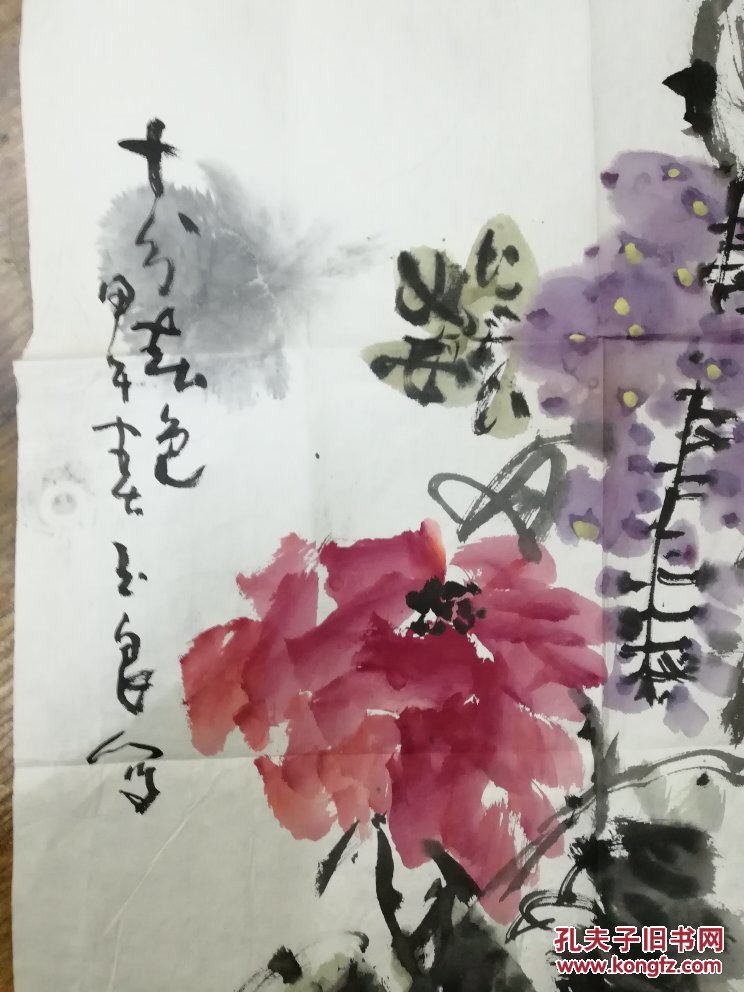 十分春色
甲午春玉良写
孔夫子旧书网
www.kongfz.com